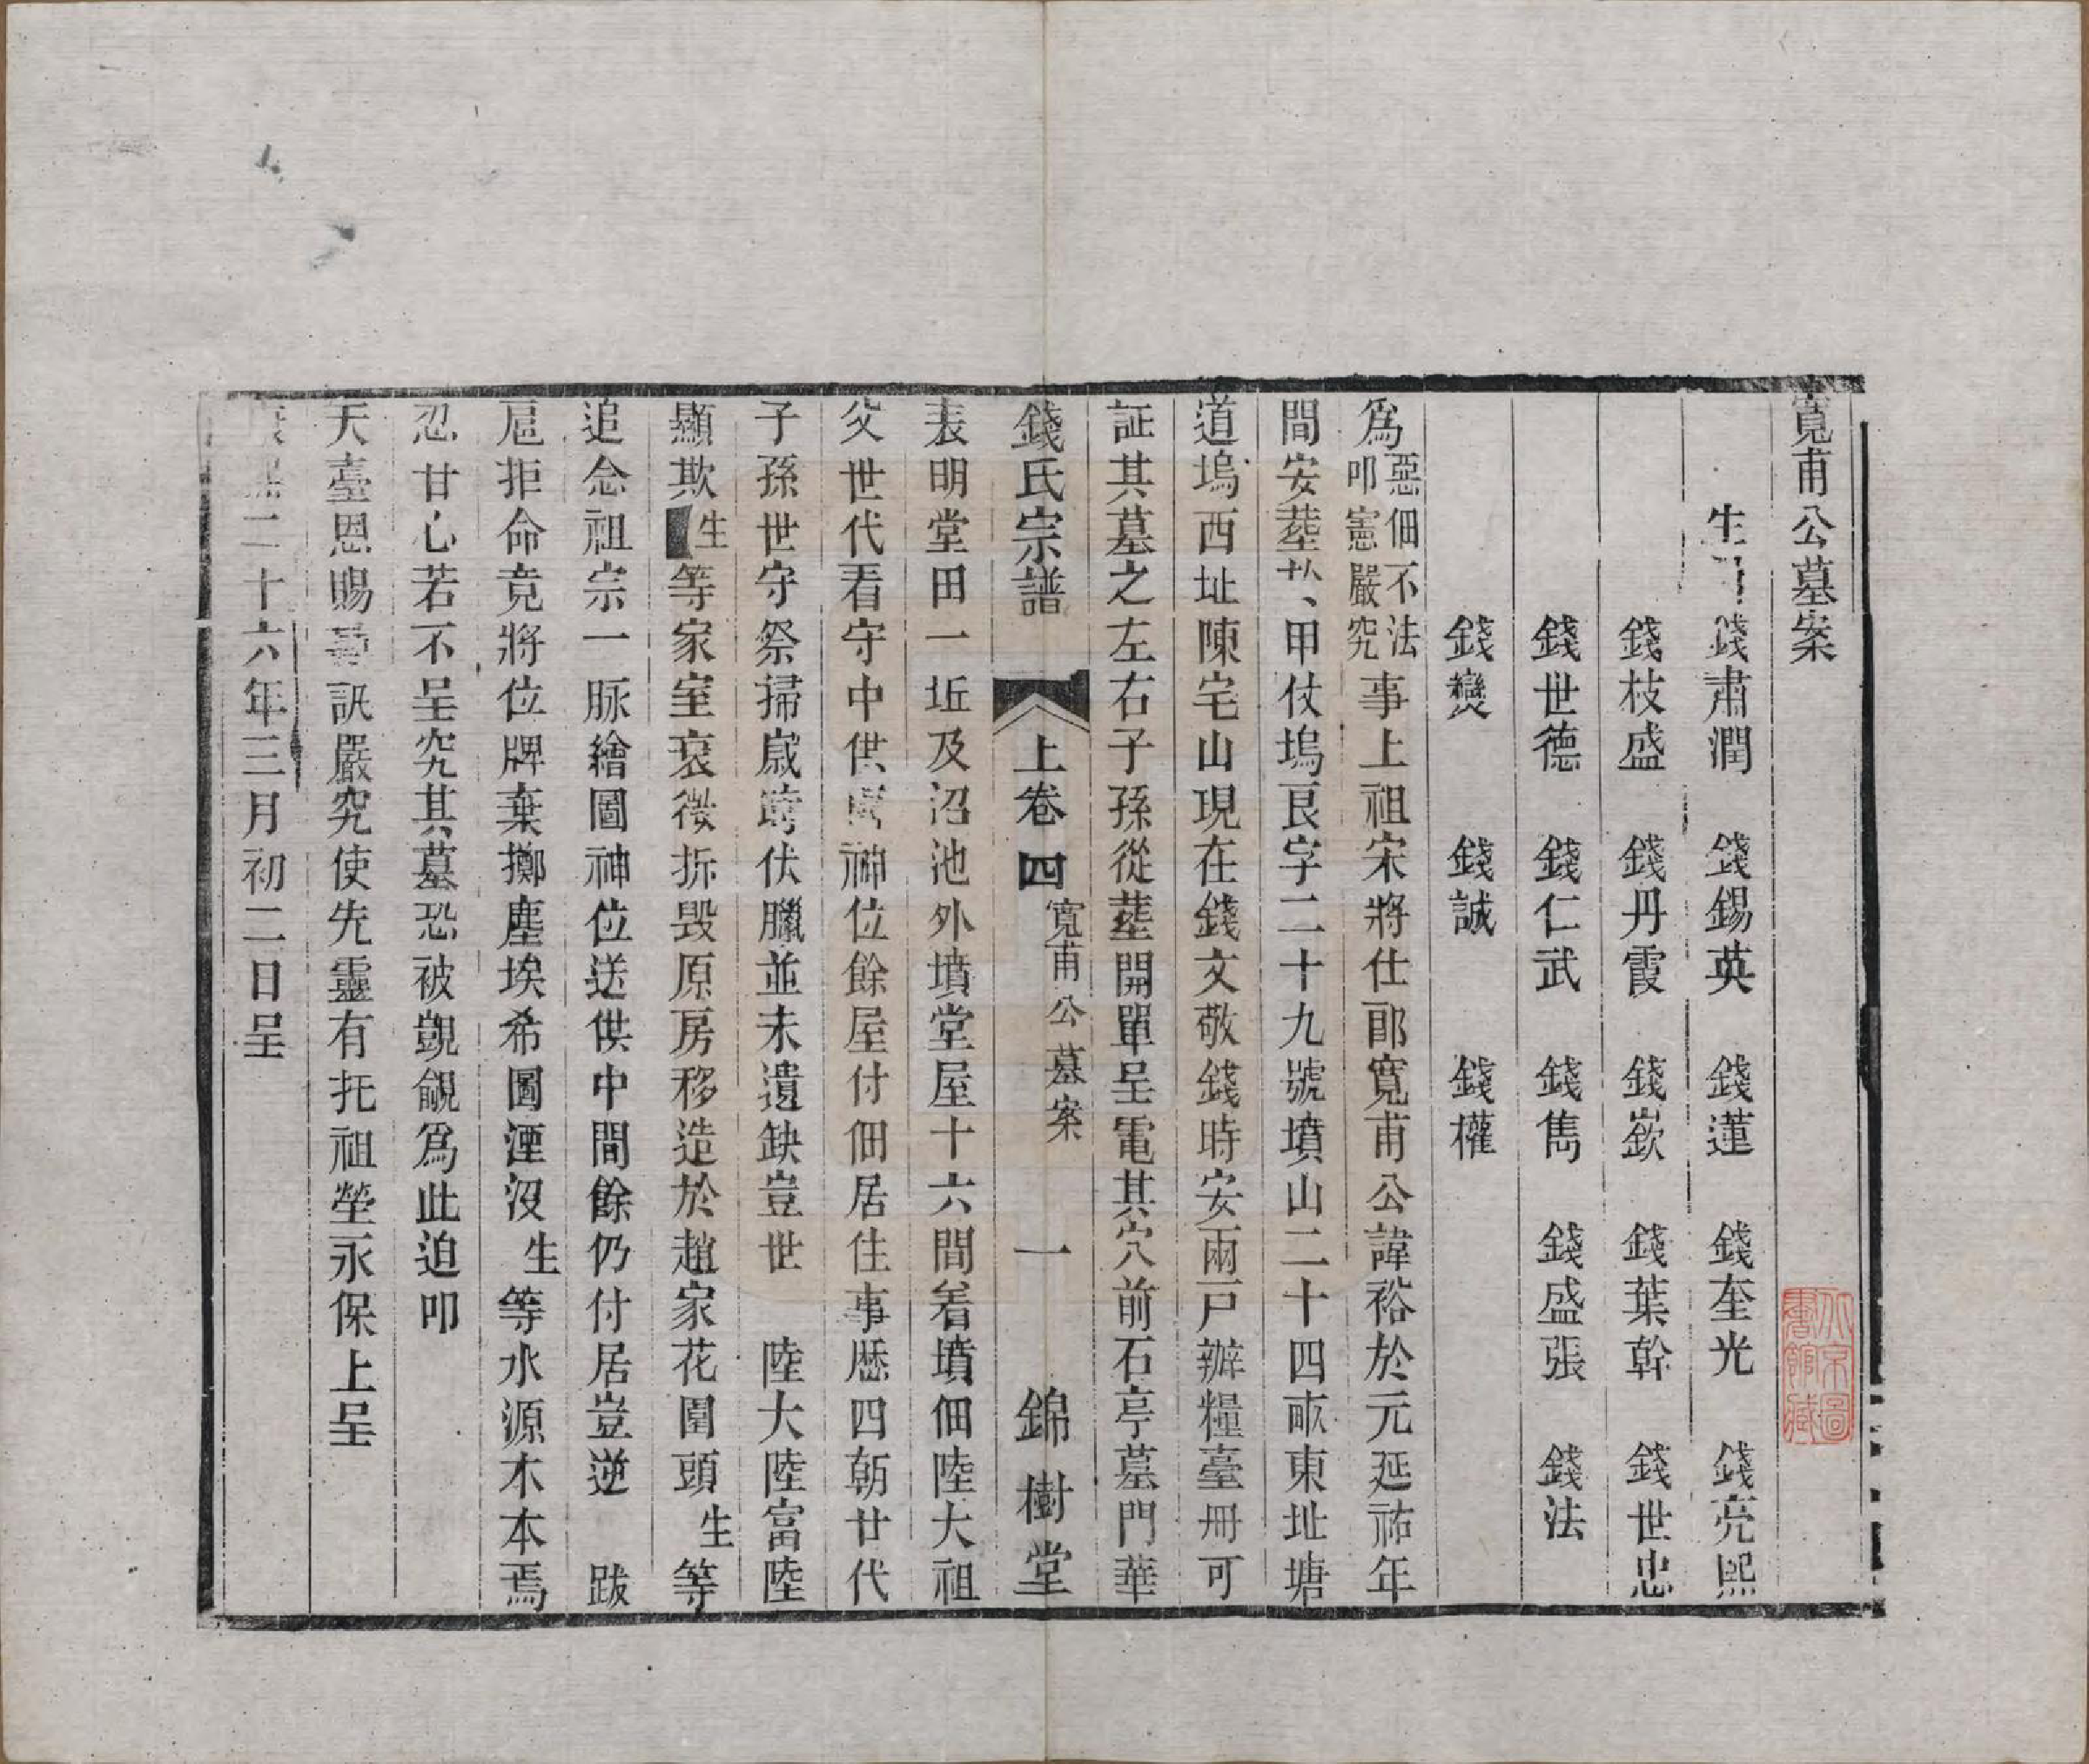 寬甫公墓案
生 錢肅潤 錢錫英 錢蓮 錢奎光 錢亮熙
錢枝盛 錢丹霞 錢嶔 錢葉幹 錢世忠
錢世德 錢仁武 錢雋 錢盛張 錢法
錢爕 錢誠 錢權
爲惡佃不法叩憲嚴究事上祖宋將仕郎寬甫公諱裕於元延祐年
間安塟扒、甲仗塢艮字二十九號墳山二十四畝東址塘
道塢西址陳宅山現在錢文敬錢時安兩戸辦糧臺冊可
証其墓之左右子孫從塟開單呈電其穴前石亭墓門華
錢氏宗譜 上卷四 寬甫公墓案 一 錦樹堂
表明堂田一坵及沼池外墳堂屋十六間着墳佃陸大祖
父世代看守中供 神位餘屋付佃居住事歷四朝廿代
子孫世守祭掃歲時伏臘並未遺缺豈世 陸大陸富陸
顯欺生等家室衰微拆毀原房移造於趙家花園頭生等
追念祖宗一脉繪圖神位送供中間餘仍付居豈逆 跋
扈拒命竟將位牌棄擲塵埃希圖湮沒生等水源木本焉
忍甘心若不呈究其墓恐被覬覦爲此迫叩
天臺恩賜 訊嚴究使先靈有托祖塋永保上呈
康熙二十六年三月初二日呈
北京圖書館藏